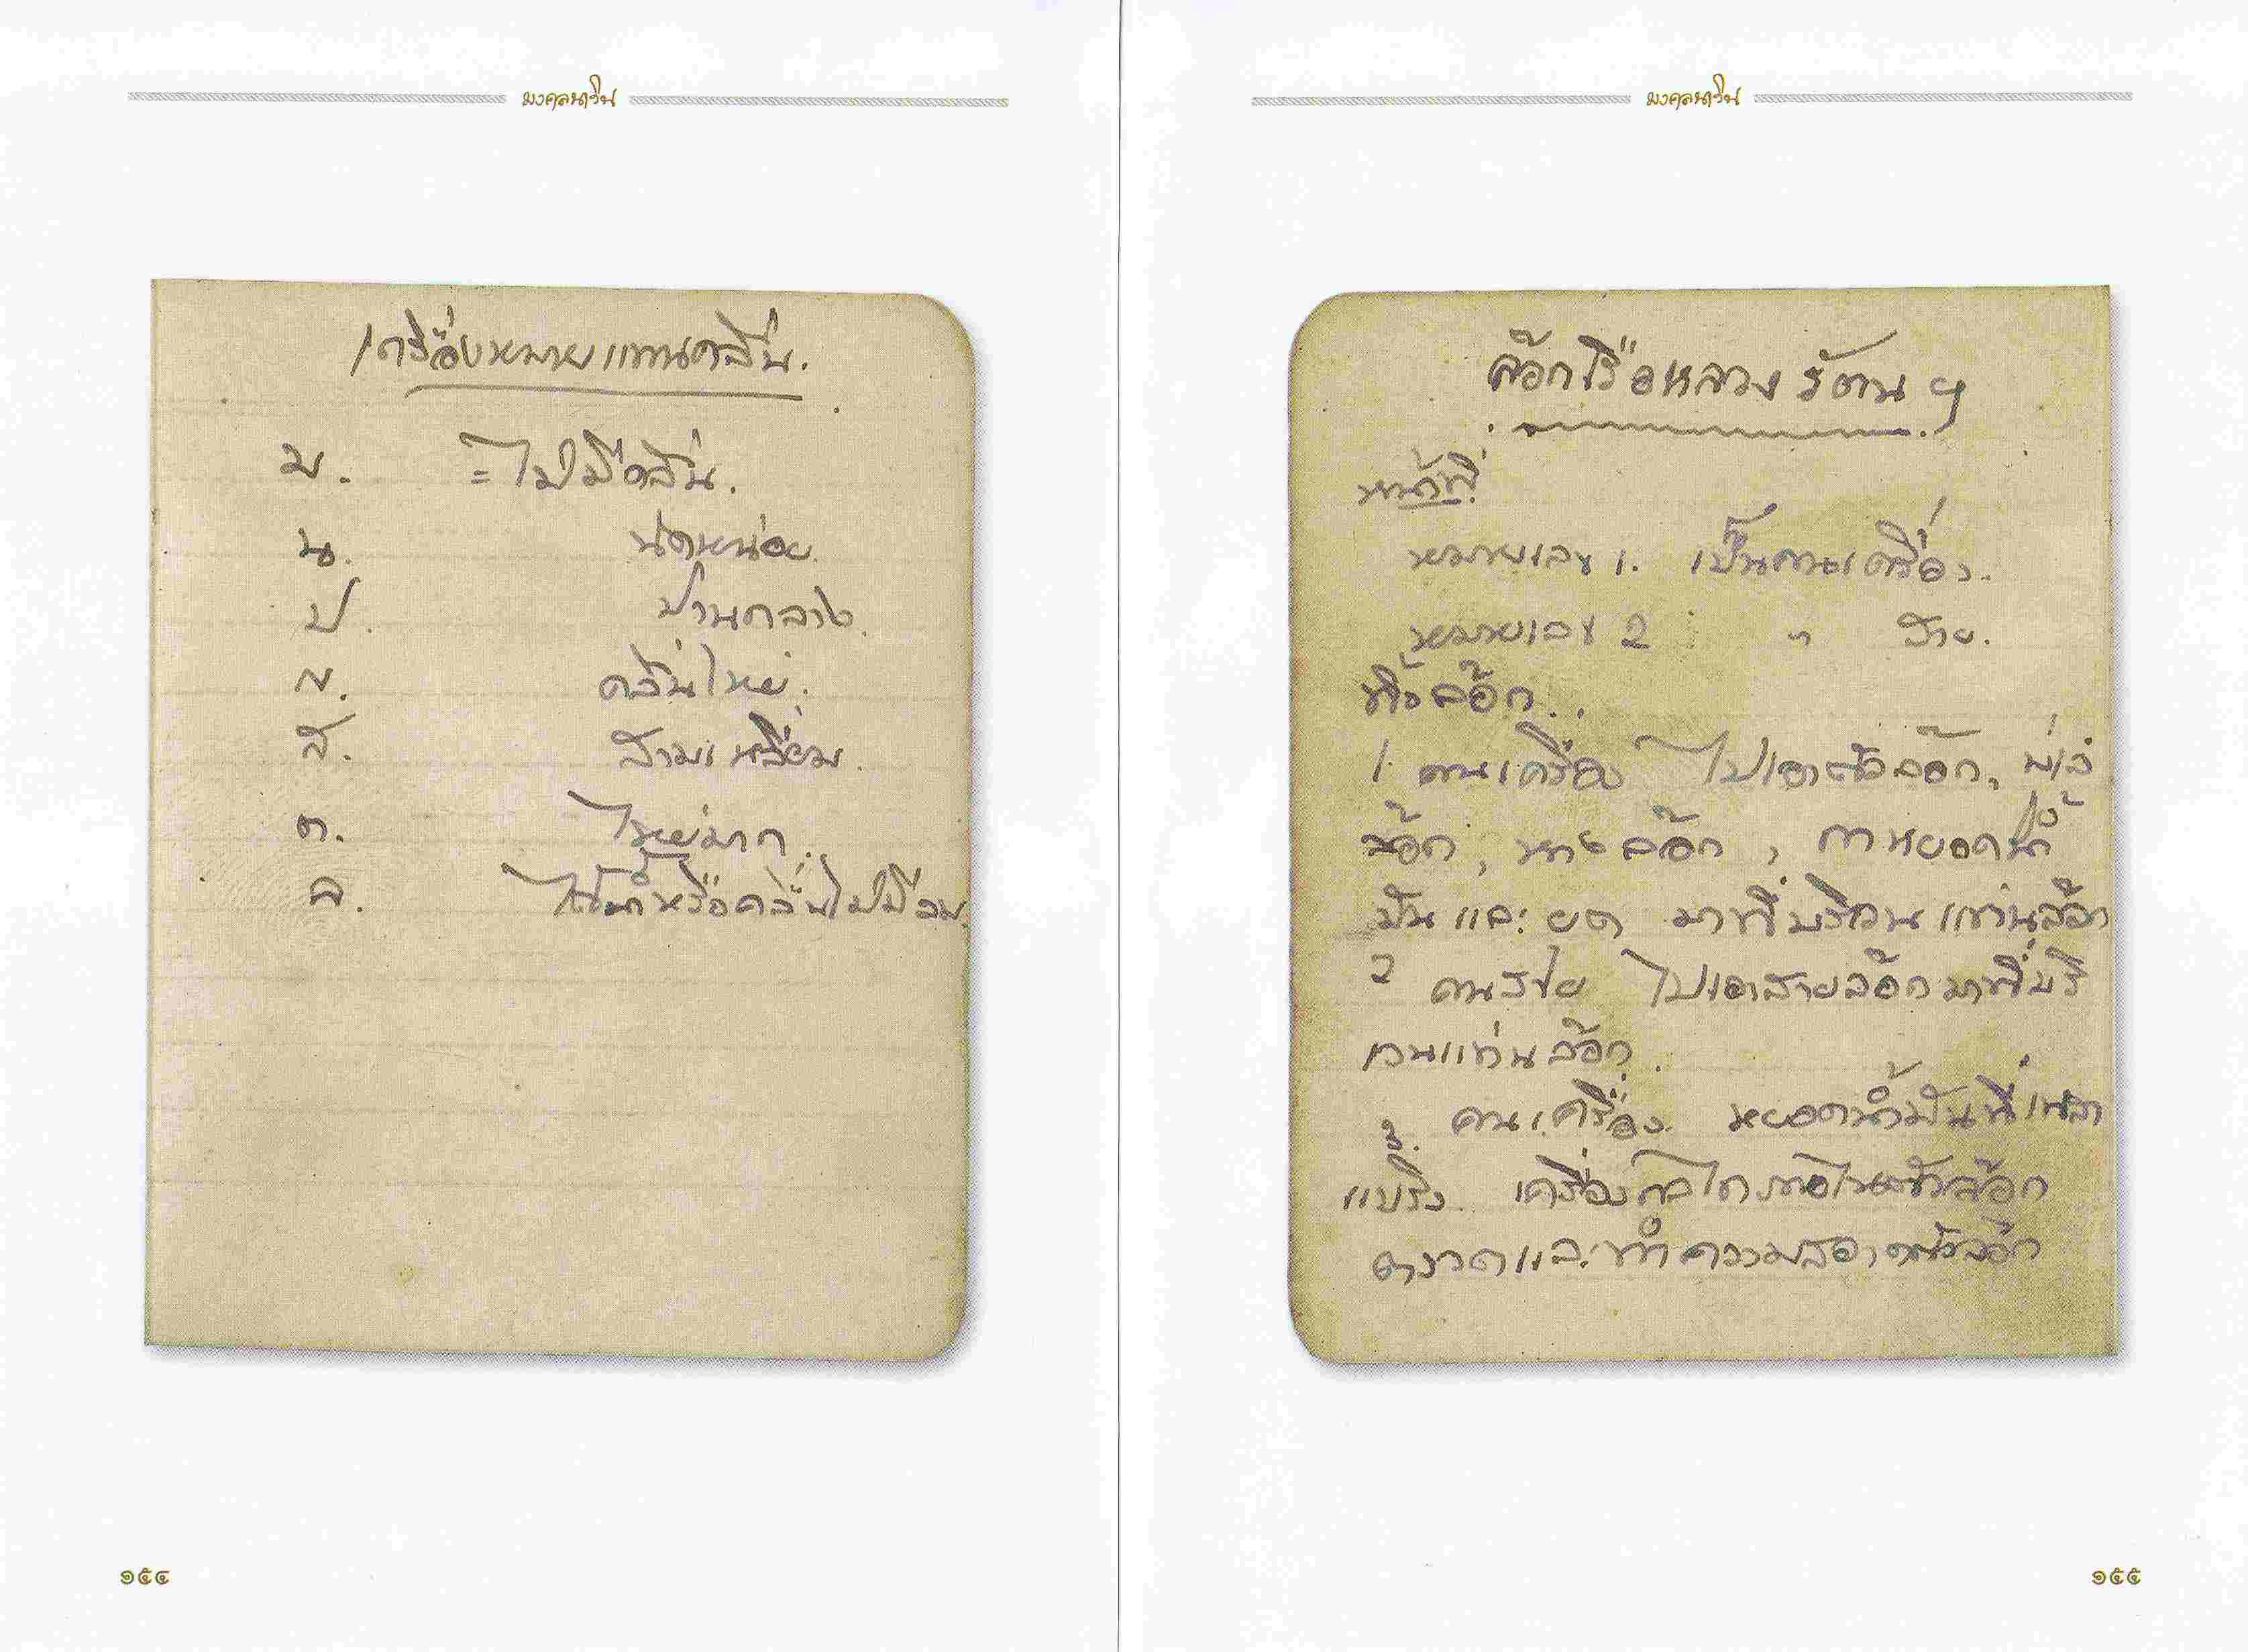 มงคลนาวิน
เครื่องหมายแทนคลื่น.
ม. = ไม่มีคลื่น.
น. นิดหน่อย.
ป. ปานกลาง.
ญ. คลื่นใหญ่.
ส. สามเหลี่ยม.
ก. ใหญ่มาก.
ล. ใต้น้ำหรือคลื่นไม่มีลม
๑๕๔
มงคลนาวิน
ล๊อกเรือหลวงรัตน ฯ
หน้าที่
หมายเลข 1. เป็นคนเครื่อง.
หมายเลข 2 " สาย.
ทิ้งล๊อก..
1. คนเครื่อง ไปเอาตัวล๊อก,
ล๊อก, หางล๊อก, กาหยอดน้ำ
มันและ มาที่บริเวนแท่นล๊อก
2 คนสาย ไปเอาสายล๊อกมาที่บริ
เวนแท่นล๊อก.
3. คนเครื่อง หยอดน้ำมันที่เพลา
เครื่อง
ตรวดและทำความสอาดตัวล๊อก
๑๕๕